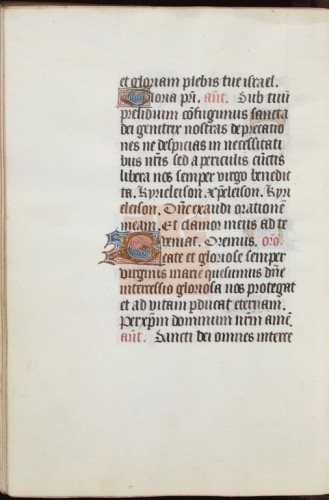 et gloriam plebis tue israel.
Gloria pri. ant. Sub tuū
presidium cōfugimus sancta
dei genitrix nostras deprecatio
nes ne despicias in necessitati
bus nris sed a periculis cūctis
libera nos semper virgo benedic
ta. Kyrieleison. xp̄eleison. Kyri
eleison. Dn̄e exaudi orationē
meam. Et clamor meus ad te
veniat. Oremus. oro.
Beate et gloriose semper
virginis marie quesumus dn̄e
intercessio gloriosa nos protegat
et ad vitam ꝑducat eternam.
Per xp̄m dominum nrm̄ amē.
ant. Sancti dei omnes interce